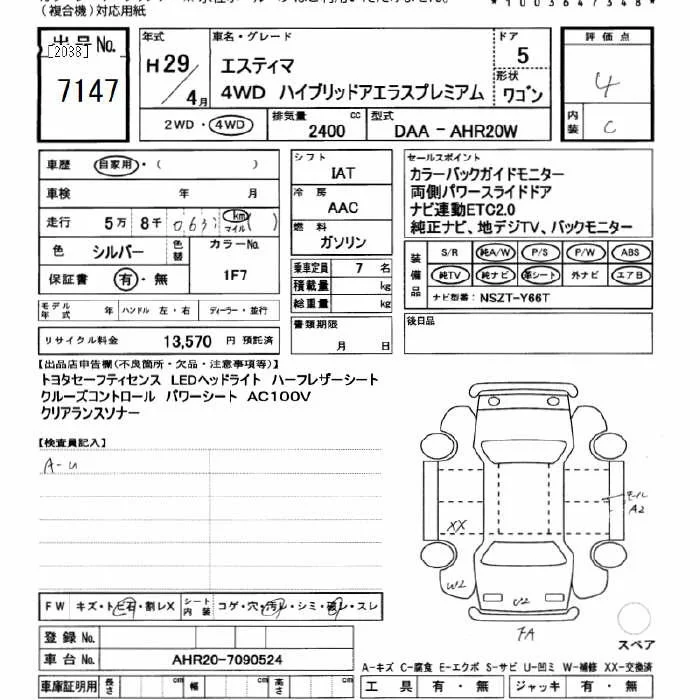 (複合機)対応用紙
*1003647348*
出品No.
[2038]
7147
年式
H29/4月
車名・グレード
エスティマ
4WD ハイブリッドアエラスプレミアム
ドア
5
形状
ワゴン
評価点
4
内装
C
2WD・4WD
排気量 2400 cc
型式 DAA-AHR20W
車歴 自家用・( )
車検 年 月
走行 5万 8千 063 km マイル ( )
色 シルバー 色替 カラーNo. 1F7
保証書 有・無
シフト
IAT
冷房
AAC
燃料
ガソリン
乗車定員 7 名
積載量 kg
総重量 kg
セールスポイント
カラーバックガイドモニター
両側パワースライドドア
ナビ連動ETC2.0
純正ナビ、地デジTV、バックモニター
装備品
S/R 純A/W P/S P/W ABS
純TV 純ナビ 革シート 外ナビ エアB
ナビ型番: NSZT-Y66T
モデル年式 年 ハンドル 左・右 ディーラー・並行
リサイクル料金 13,570 円 預託済
書類期限
月 日
後日品
【出品店申告欄(不良箇所・欠品・注意事項等)】
トヨタセーフティセンス LEDヘッドライト ハーフレザーシート
クルーズコントロール パワーシート AC100V
クリアランスソナー
【検査員記入】
A-U
モール
A2
XX
W2
U2
FA
スペア
FW キズ・トビ石・割レX シート内装 コゲ・穴・汚レ・シミ・破レ・スレ
登録No.
車台No. AHR20-7090524
A-キズ C-腐食 E-エクボ S-サビ U-凹ミ W-補修 XX-交換済
車庫証明用 長さ cm 幅 cm 高さ cm
工具 有・無 ジャッキ 有・無